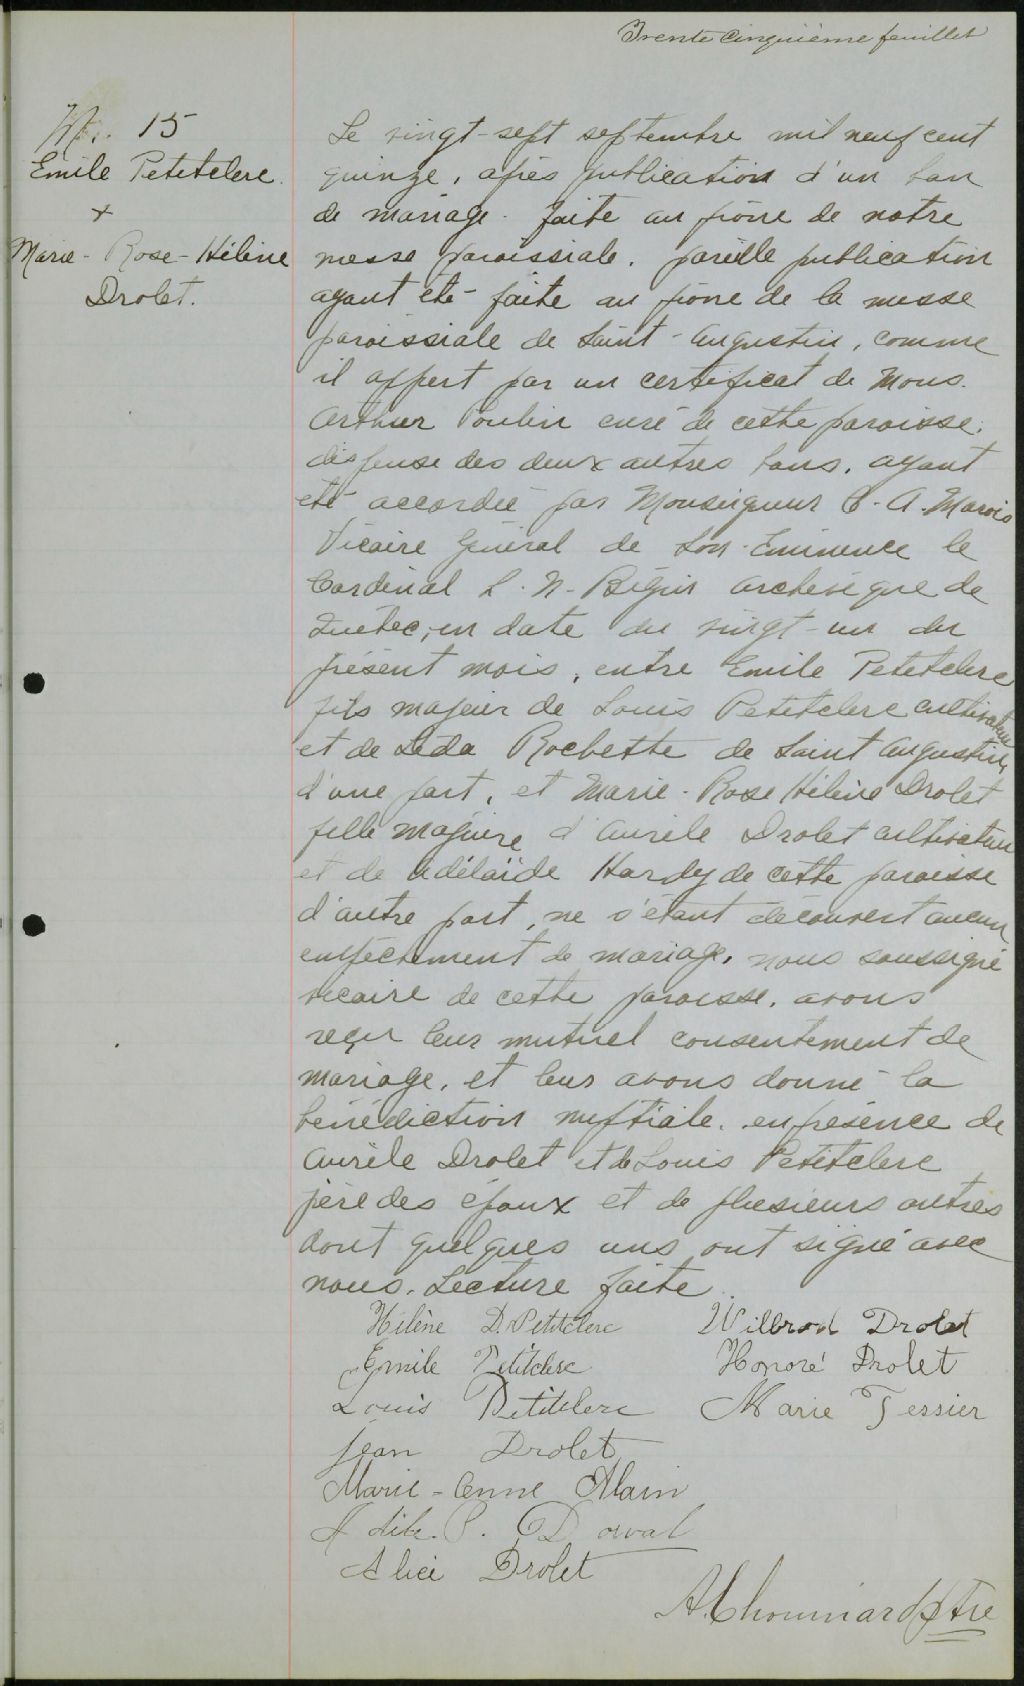 Trente cinquième feuillet
M. 15
Emile Petitclerc.
+
Marie-Rose-Hélène
Drolet.
Le vingt-sept septembre mil neuf cent
quinze, après publication d'un ban
de mariage faite au prône de notre
messe paroissiale, pareille publication
ayant été faite au prône de la messe
paroissiale de Saint-Augustin, comme
il appert par un certificat de Mons.
Arthur Poulin curé de cette paroisse;
dispense des deux autres bans, ayant
été accordée par Monseigneur C. A. Marois
Vicaire Général de Son Eminence le
Cardinal L. N. Bégin archevêque de
Québec, en date du vingt-un du
présent mois, entre Emile Petitclerc
fils majeur de Louis Petitclerc cultivateur
et de Léda Rochette de Saint Augustin,
d'une part, et Marie-Rose Hélène Drolet
fille majeure d'Aurèle Drolet cultivateur
et de Adélaïde Hardy de cette paroisse
d'autre part, ne s'étant découvert aucun
empêchement de mariage, nous soussigné
vicaire de cette paroisse, avons
reçu leur mutuel consentement de
mariage, et leur avons donné la
bénédiction nuptiale, en présence de
Aurèle Drolet et de Louis Petitclerc
père des époux et de plusieurs autres
dont quelques uns ont signé avec
nous. Lecture faite.
Hélène D. Petitclerc Wilbrod Drolet
Emile Petitclerc Honoré Drolet
Louis Petitclerc Marie Tessier
Jean Drolet
Marie-Anne Alain
P. Dorval
Alice Drolet
A. Chouinard ptre